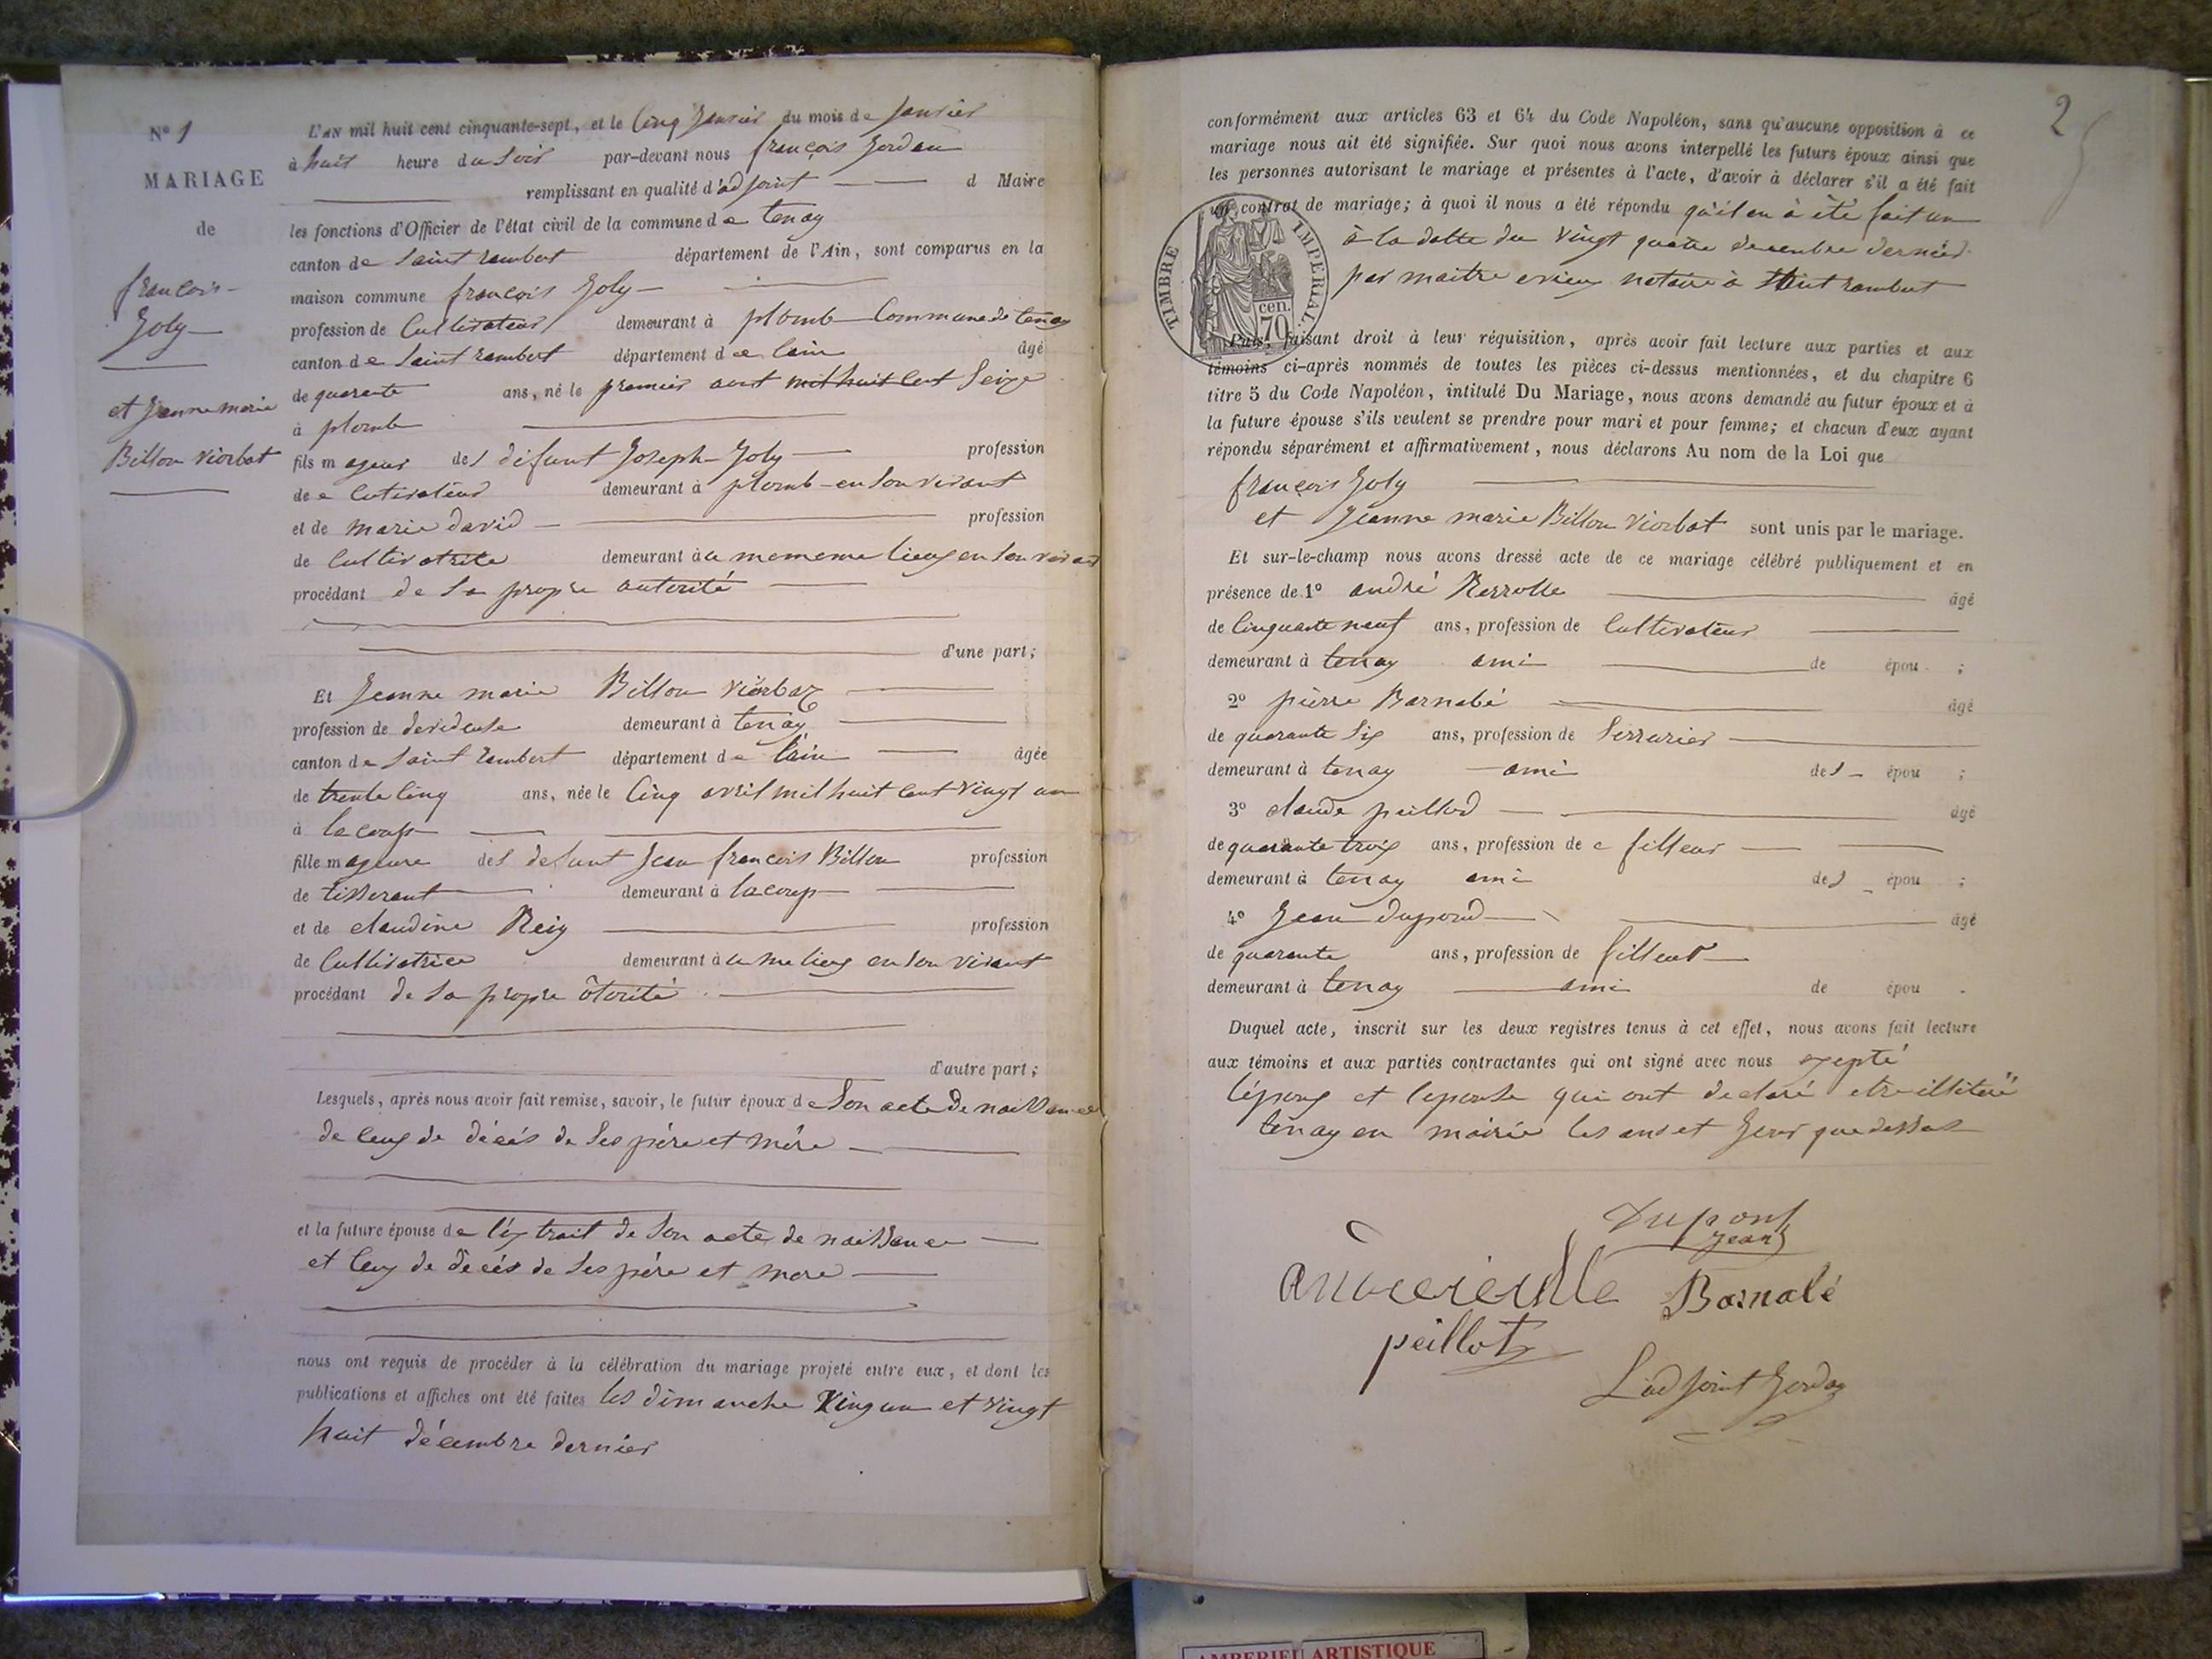 N° 1
MARIAGE
de
françois
Joly
et Jeanne marie
Billon viorbat
L'AN mil huit cent cinquante-sept, et le Cinq Janvier du mois de Janvier
à huit heure du Soir par-devant nous françois Jordan
remplissant en qualité d'adjoint d Maire
les fonctions d'Officier de l'état civil de la commune de tenay
canton de Saint rambert département de l'Ain, sont comparus en la
maison commune françois Joly
profession de Cultivateur demeurant à plomb Commune de tenay
canton de Saint rambert département de lain âgé
de quarente ans, né le premier aout mil huit cent Seize
à plomb
fils majeur des défunt Joseph Joly profession
de cutivateur demeurant à plomb en Son vivant
et de marie david profession
de Cultivatrice demeurant à u mememe lieux en Son vivant
procédant de Sa propre autorité
d'une part;
Et Jeanne marie Billon viorbaz
profession de devideuse demeurant à tenay
canton de Saint rambert département de lain âgée
de trente Cinq ans, née le Cinq avril mil huit Cent vingt un
à lacoup
fille majeure des defunt Jean francois Billon profession
de tisserant demeurant à lacoup
et de claudine Reix profession
de Cultivatrice demeurant à u me lieux en Son vivant
procédant de Sa propre ôtorité
d'autre part;
Lesquels, après nous avoir fait remise, savoir, le futur époux de Son acte de naissance
de ceux de décés de Ses père et mére
et la future épouse de l'éxtrait de Son acte de naissance
et Ceux de décés de Ses père et mere
nous ont requis de procéder à la célébration du mariage projeté entre eux, et dont les
publications et affiches ont été faites les dimanche vingun et vingt
huit décembre dernier
2
conformément aux articles 63 et 64 du Code Napoléon, sans qu'aucune opposition à ce
mariage nous ait été signifiée. Sur quoi nous avons interpellé les futurs époux ainsi que
les personnes autorisant le mariage et présentes à l'acte, d'avoir à déclarer s'il a été fait
un contrat de mariage; à quoi il nous a été répondu qu'il en à été fait un
à la datte du vingt quatre decembre dernier
par maitre notaire à Saint rambert
TIMBRE IMPERIAL
70 cen.
Puis, faisant droit à leur réquisition, après avoir fait lecture aux parties et aux
témoins ci-après nommés de toutes les pièces ci-dessus mentionnées, et du chapitre 6
titre 5 du Code Napoléon, intitulé Du Mariage, nous avons demandé au futur époux et à
la future épouse s'ils veulent se prendre pour mari et pour femme; et chacun d'eux ayant
répondu séparément et affirmativement, nous déclarons Au nom de la Loi que
françois Joly
et Jeanne marie Billon viorbat sont unis par le mariage.
Et sur-le-champ nous avons dressé acte de ce mariage célébré publiquement et en
présence de 1° andré âgé
de Cinquante neuf ans, profession de Cultivateur
demeurant à tenay ami de épou ;
2° pierre Barnabé âgé
de quarante Six ans, profession de Serrurier
demeurant à tenay ami des épou ;
3° claude peillod âgé
de quarante trois ans, profession de filleur
demeurant à tenay ami des épou ;
4° Jean dupond âgé
de quarante ans, profession de filleur
demeurant à tenay ami de épou .
Duquel acte, inscrit sur les deux registres tenus à cet effet, nous avons fait lecture
aux témoins et aux parties contractantes qui ont signé avec nous exepté
l'époux et lepouse qui ont declaré etre illiteré
tenay en mairie les ans et Jour que dessus
Dupont
Jean
Barnabé
peillot
L'adjoint Jordan
AMBERIEU ARTISTIQUE